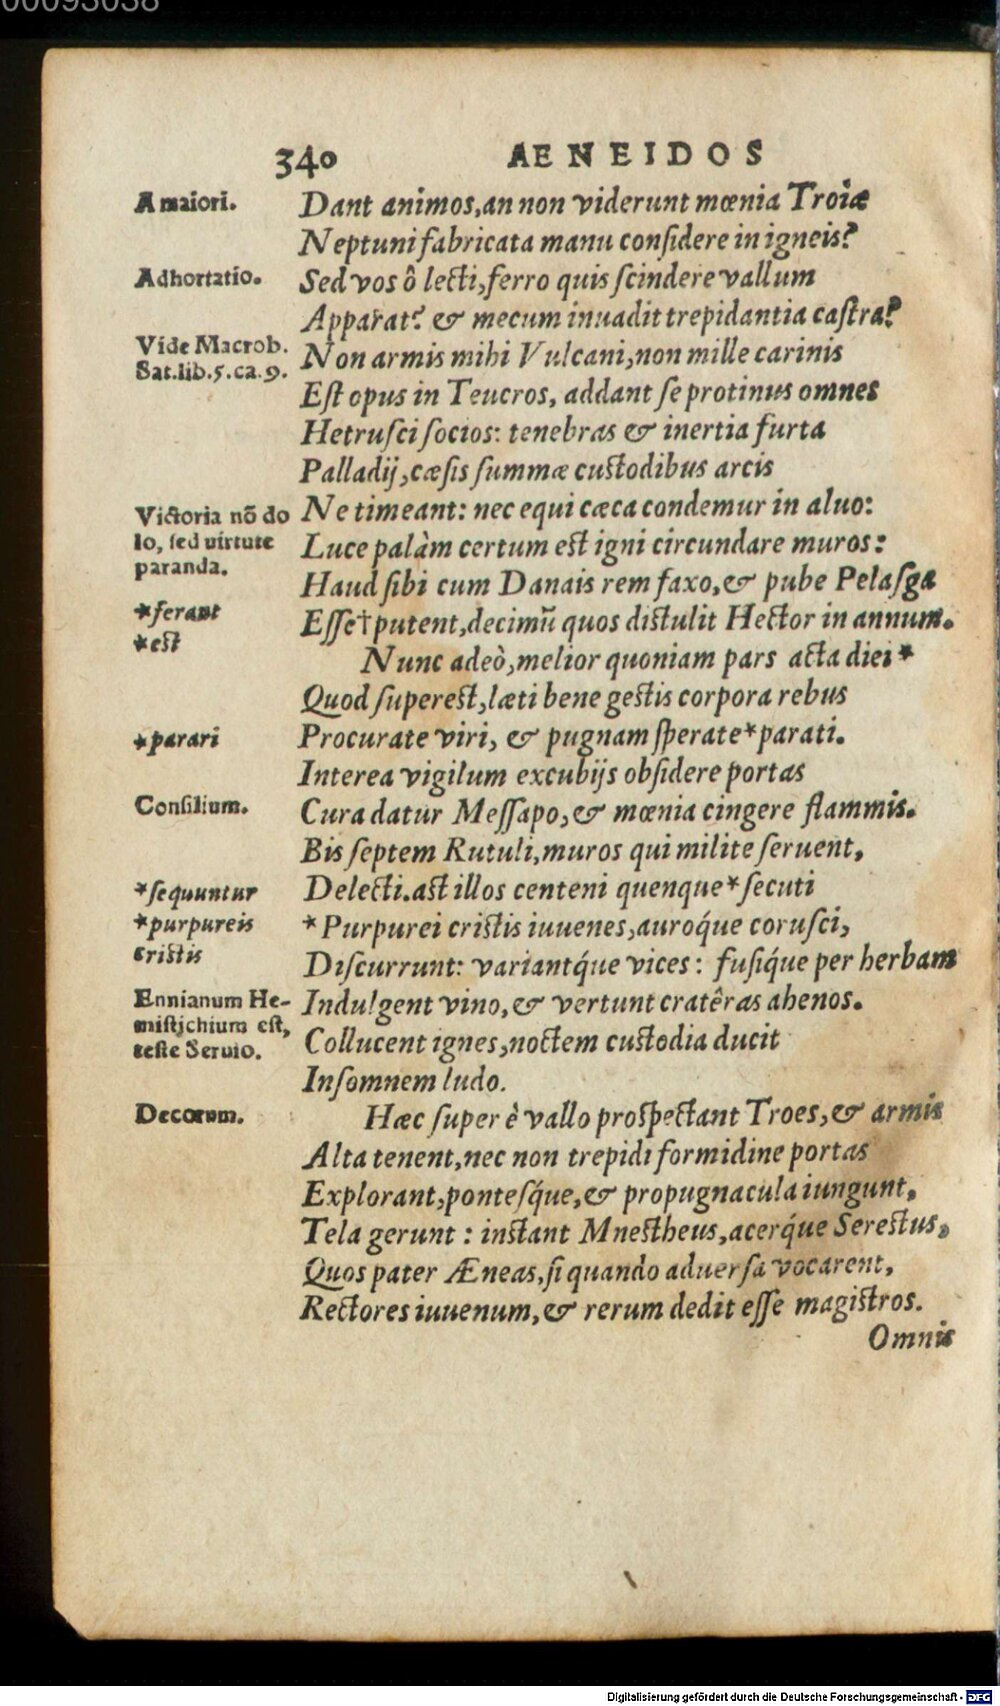 00093038
340 AENEIDOS
A maiori.
Dant animos, an non viderunt mœnia Troiæ
Neptuni fabricata manu conſidere in igneis?
Adhortatio.
Sed vos ô lecti, ferro quis ſcindere vallum
Apparat? & mecum inuadit trepidantia caſtra?
Vide Macrob.
Sat.lib.5.ca.9.
Non armis mihi Vulcani, non mille carinis
Eſt opus in Teucros, addant ſe protinus omnes
Hetruſci ſocios: tenebras & inertia furta
Palladij, cæſis ſummæ cuſtodibus arcis
Victoria nõ do
lo, ſed uirtute
paranda.
Ne timeant: nec equi cæca condemur in aluo:
Luce palàm certum eſt igni circundare muros:
Haud ſibi cum Danais rem faxo, & pube Pelaſga
*ferant
*eſt
Eſſe†putent, decimũ quos diſtulit Hector in annum.
Nunc adeò, melior quoniam pars acta diei*
Quod ſupereſt, læti bene geſtis corpora rebus
*parari
Procurate viri, & pugnam ſperate*parati.
Interea vigilum excubijs obſidere portas
Conſilium.
Cura datur Meſſapo, & mœnia cingere flammis.
Bis ſeptem Rutuli, muros qui milite ſeruent,
*ſequuntur
*purpureis
criſtis
Delecti. aſt illos centeni quenque*ſecuti
*Purpurei criſtis iuuenes, auroq́ue coruſci,
Diſcurrunt: variantq́ue vices: fuſiq́ue per herbam
Ennianum He-
miſtichium eſt,
teſte Seruio.
Indulgent vino, & vertunt cratêras ahenos.
Collucent ignes, noctem cuſtodia ducit
Inſomnem ludo.
Decorum.
Hæc ſuper è vallo proſpectant Troes, & armis
Alta tenent, nec non trepidi formidine portas
Explorant, ponteſq́ue, & propugnacula iungunt,
Tela gerunt: inſtant Mneſtheus, acerq́ue Sereſtus,
Quos pater Æneas, ſi quando aduerſa vocarent,
Rectores iuuenum, & rerum dedit eſſe magiſtros.
Omnis
Digitalisierung gefördert durch die Deutsche Forschungsgemeinschaft - DFG